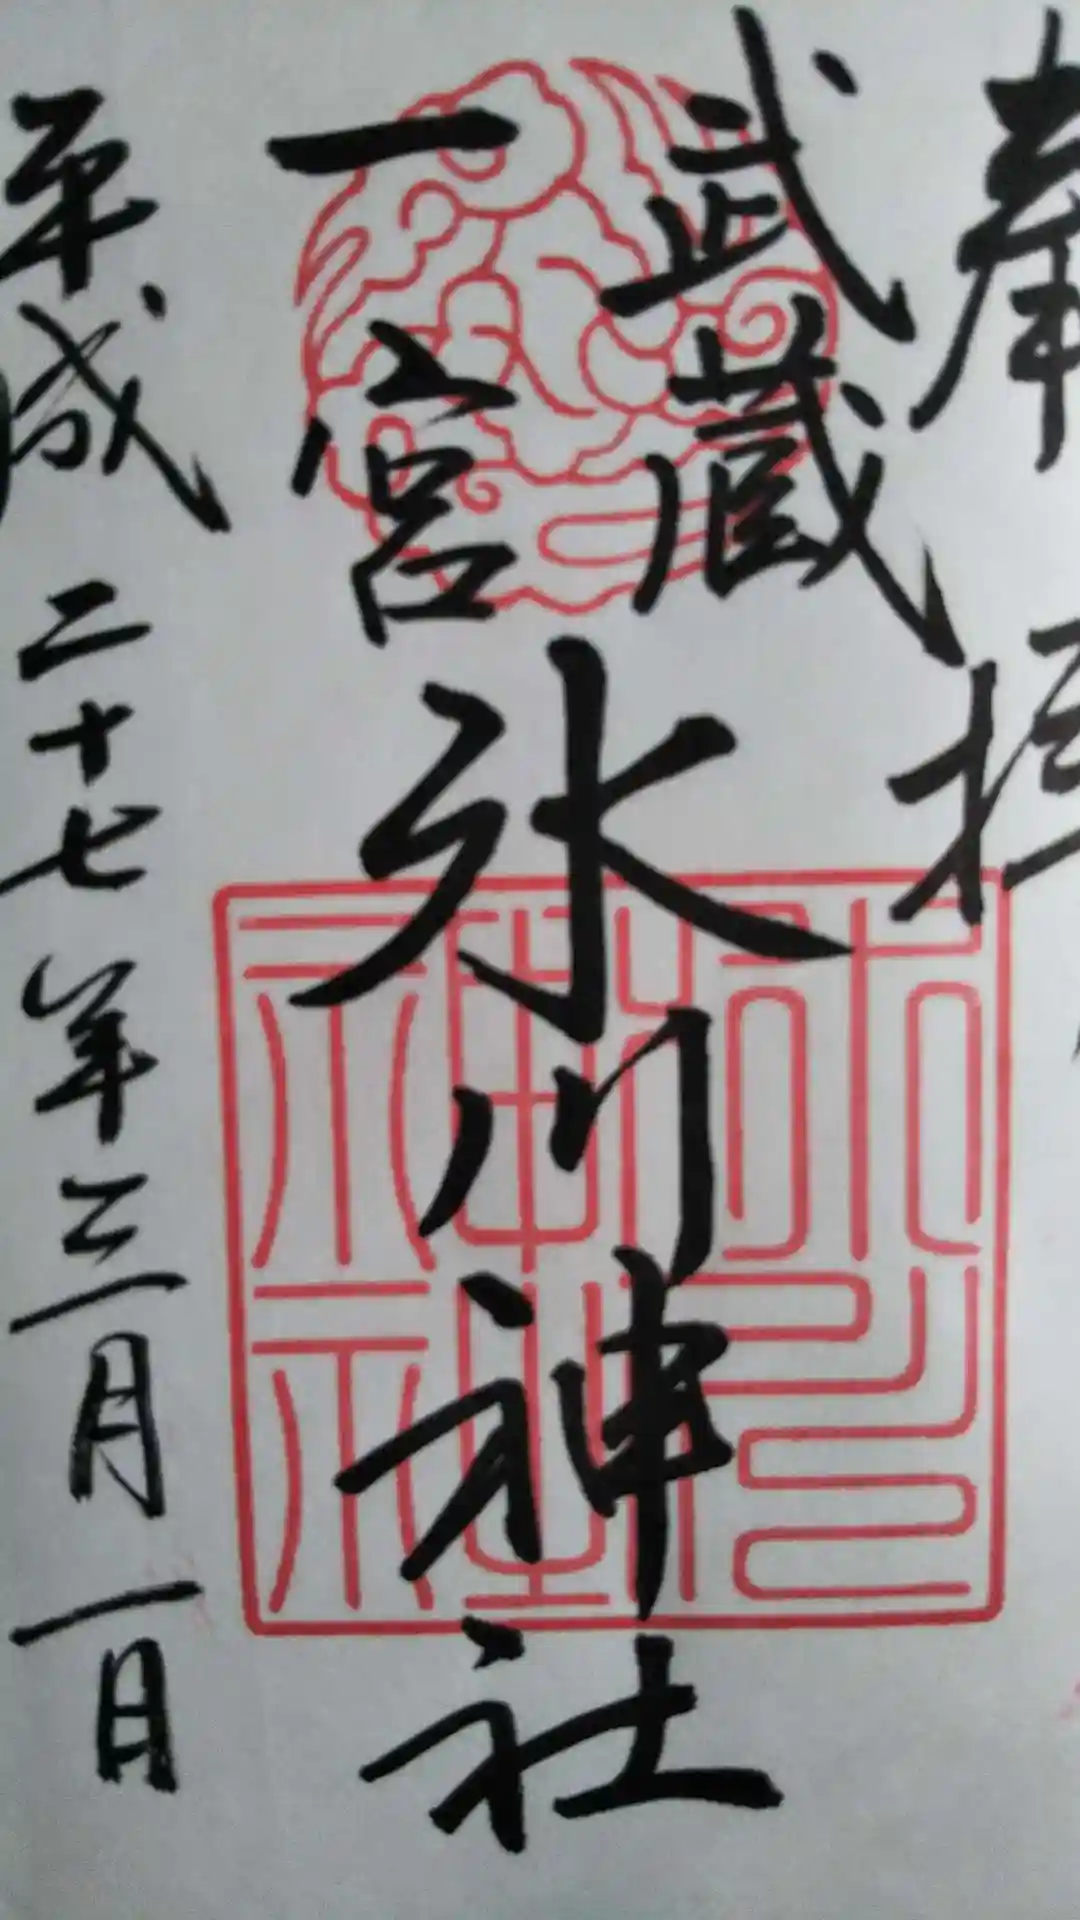 奉拝
武蔵
一宮
氷川神社
平成二十七年三月一日
氷川神社